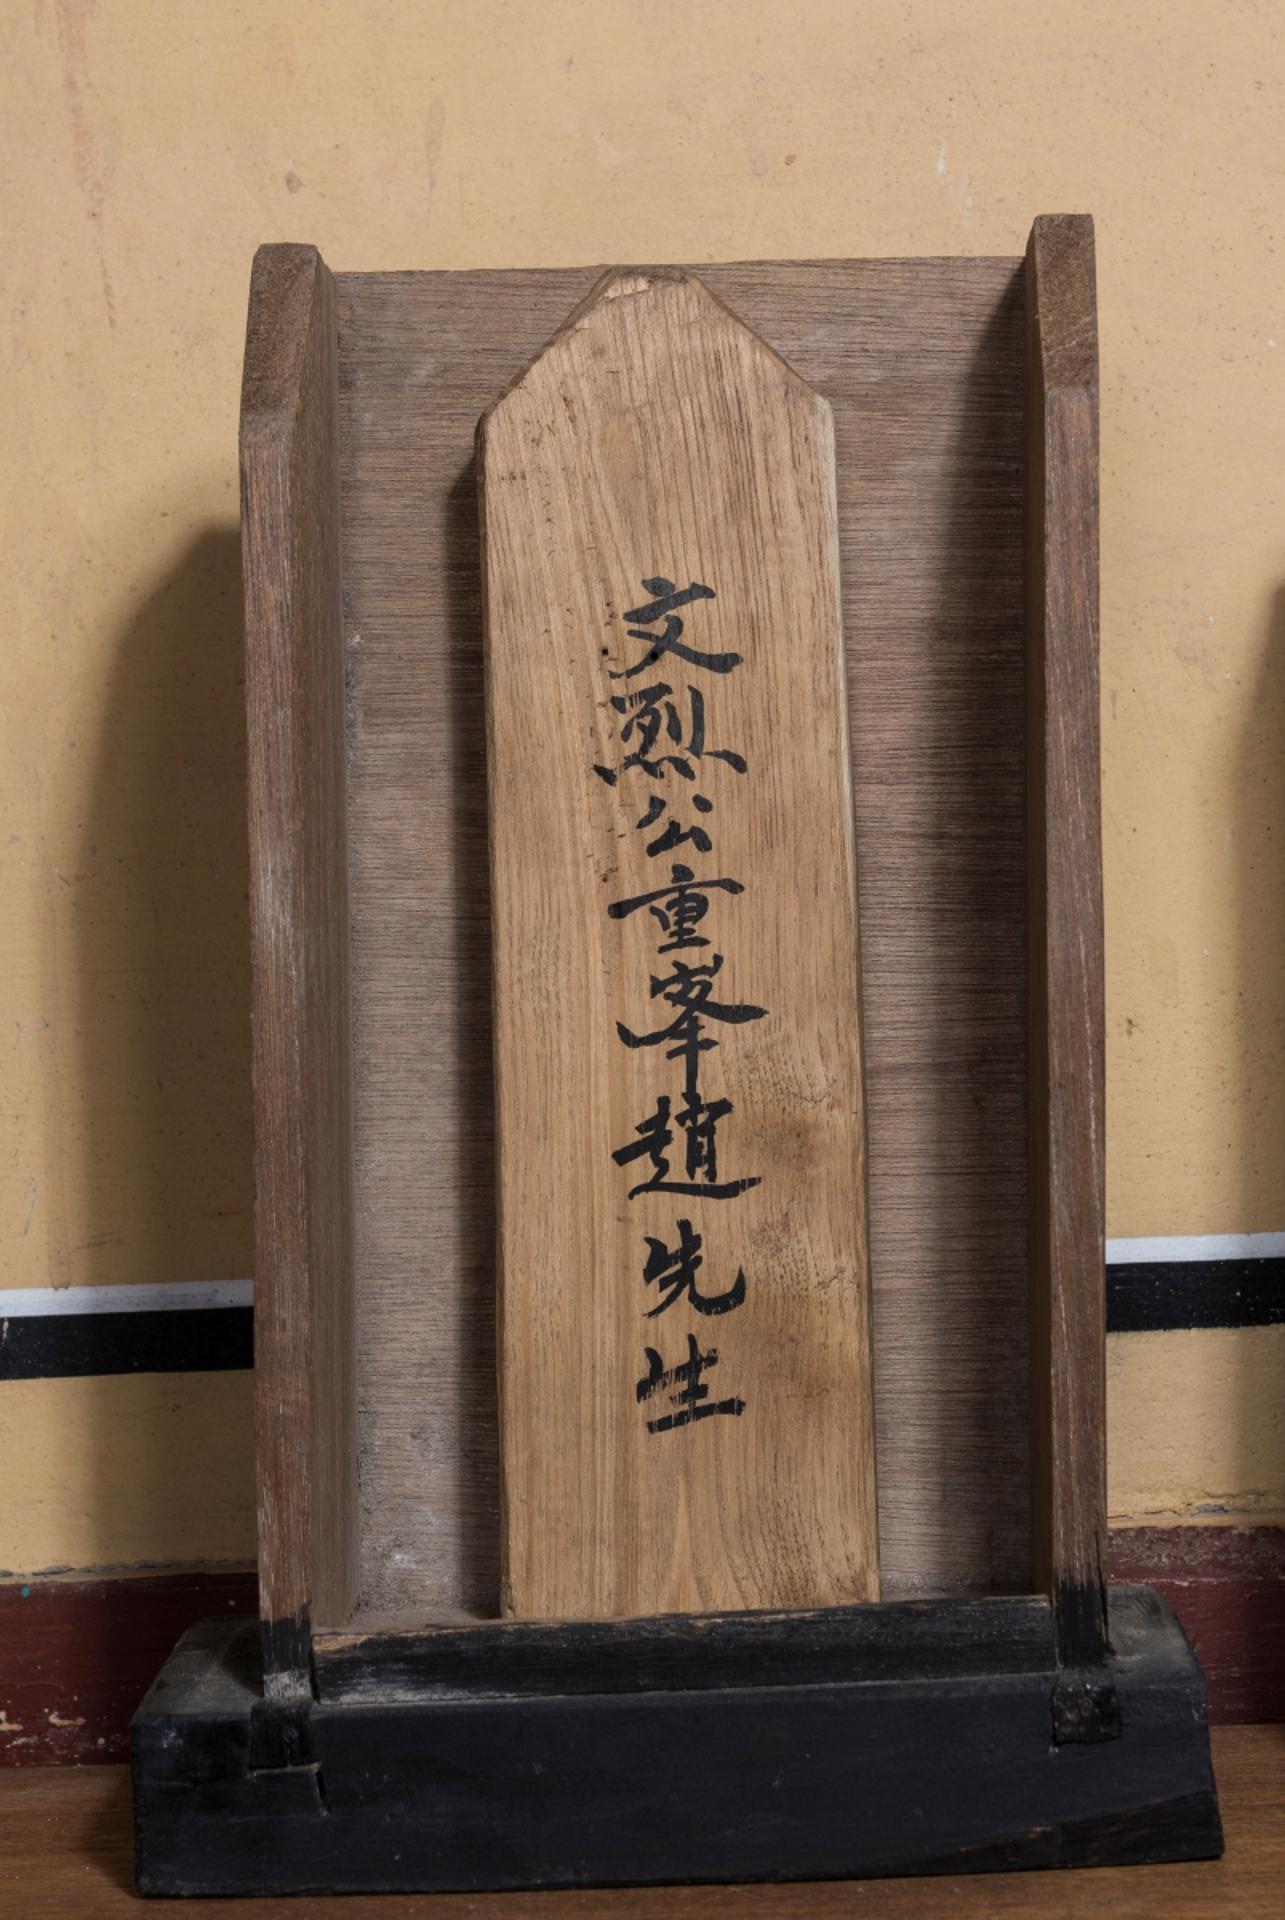 文烈公重峯趙先生